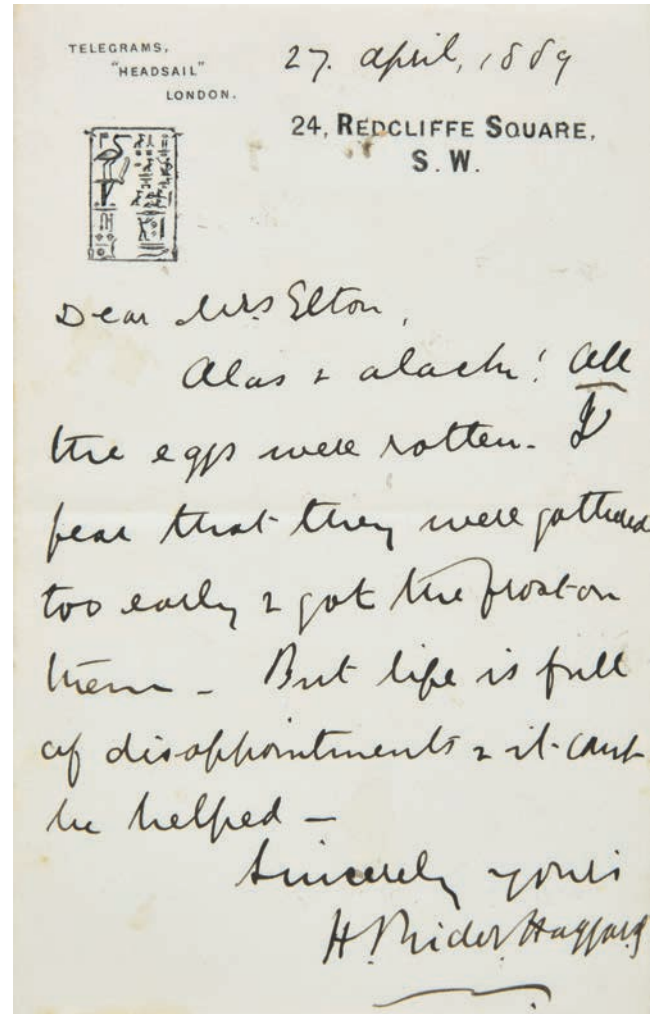 TELEGRAMS,
"HEADSAIL"
LONDON.
27. April, 1889
24, REDCLIFFE SQUARE,
S. W.
Dear Mrs Elton,
Alas & alack! All
the eggs were rotten. I
fear that they were gathered
too early & got the frost on
them – But life is full
of disappointments & it cant
be helped –
Sincerely yours
H. Rider Haggard